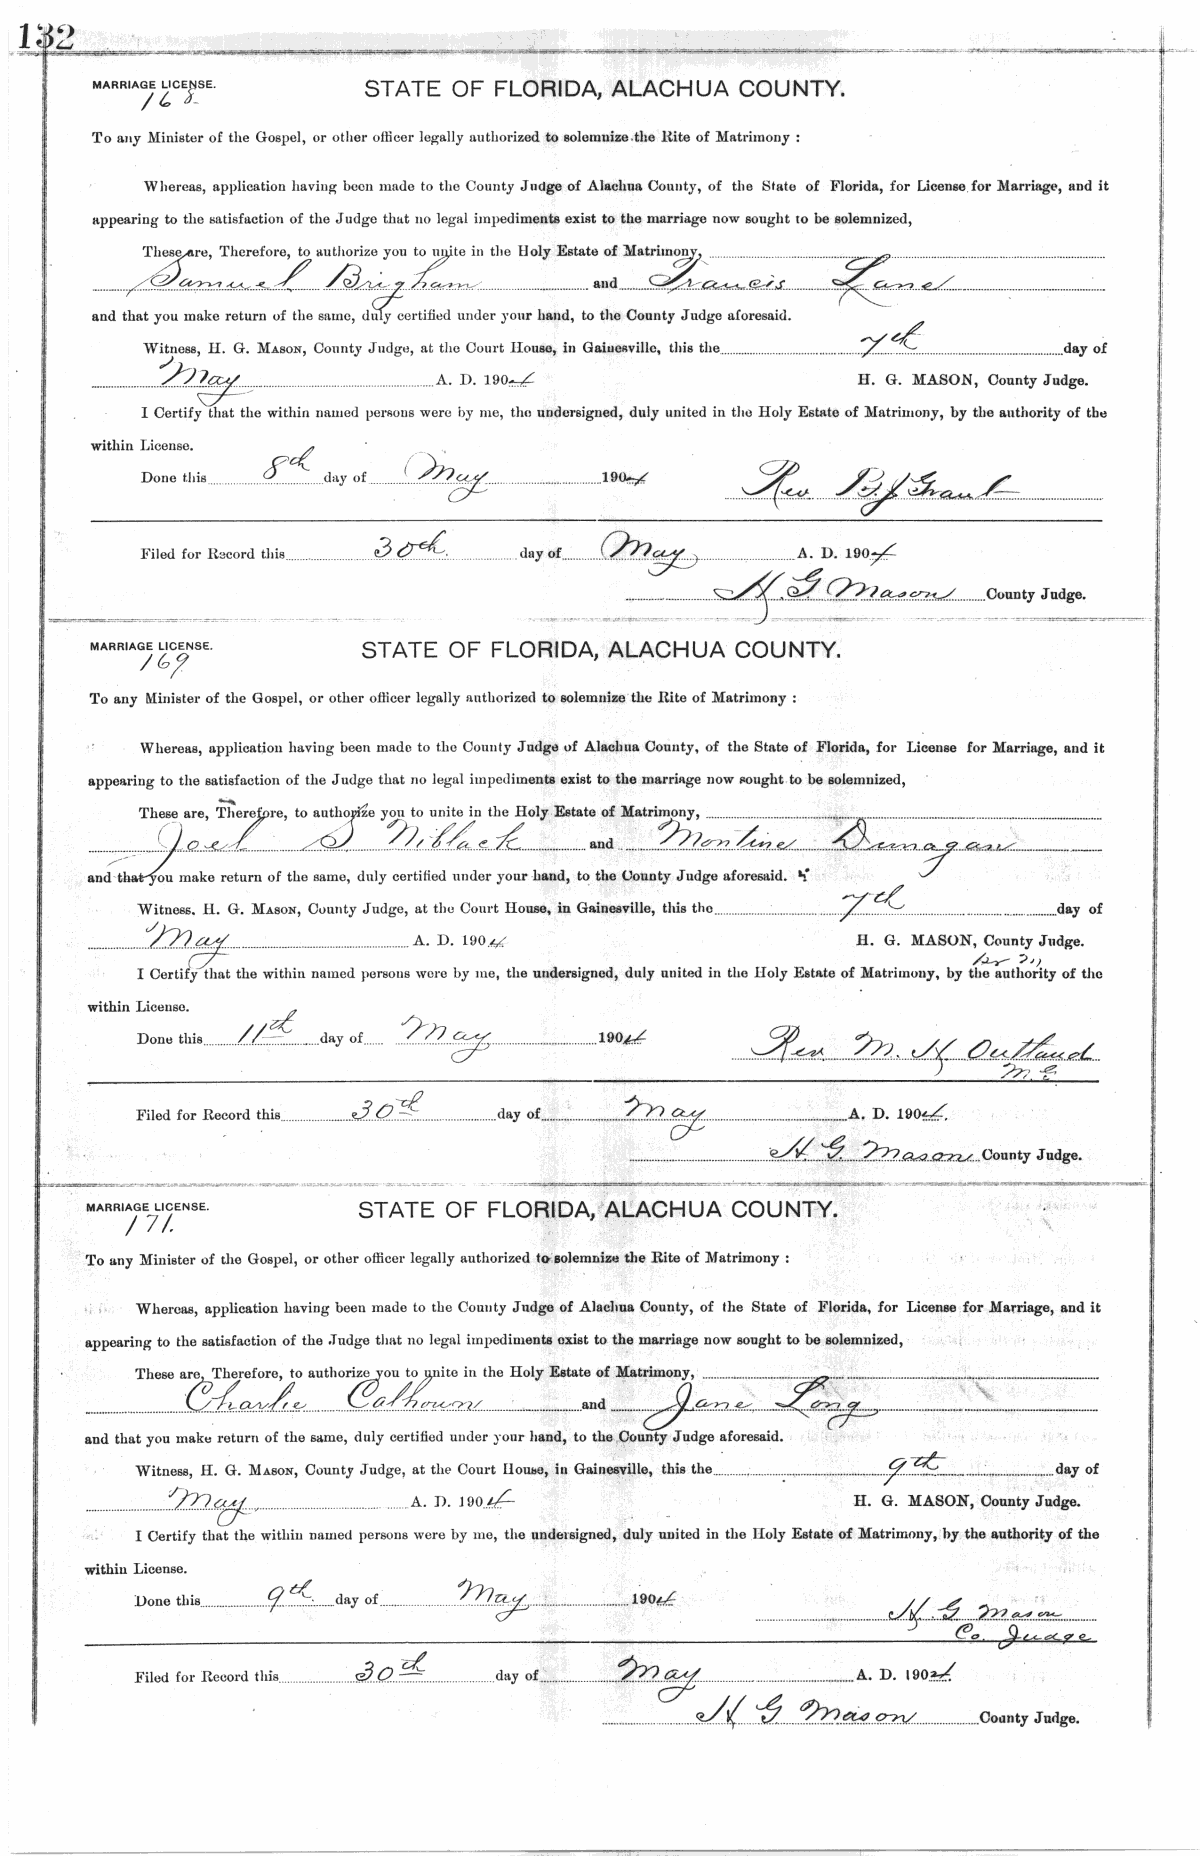 132
MARRIAGE LICENSE. STATE OF FLORIDA, ALACHUA COUNTY.
168
To any Minister of the Gospel, or other officer legally authorized to solemnize the Rite of Matrimony :
Whereas, application having been made to the County Judge of Alachua County, of the State of Florida, for License for Marriage, and it
appearing to the satisfaction of the Judge that no legal impediments exist to the marriage now sought to be solemnized,
These are, Therefore, to authorize you to unite in the Holy Estate of Matrimony,
Samuel Brigham and Francis Lane
and that you make return of the same, duly certified under your hand, to the County Judge aforesaid.
Witness, H. G. MASON, County Judge, at the Court House, in Gainesville, this the 7th day of
May A. D. 1904 H. G. MASON, County Judge.
I Certify that the within named persons were by me, the undersigned, duly united in the Holy Estate of Matrimony, by the authority of the
within License.
Done this 8th day of May 1904 Rev. B. J. Grant
Filed for Record this 30th. day of May A. D. 1904
H. G Mason County Judge.
MARRIAGE LICENSE. STATE OF FLORIDA, ALACHUA COUNTY.
169
To any Minister of the Gospel, or other officer legally authorized to solemnize the Rite of Matrimony :
Whereas, application having been made to the County Judge of Alachua County, of the State of Florida, for License for Marriage, and it
appearing to the satisfaction of the Judge that no legal impediments exist to the marriage now sought to be solemnized,
These are, Therefore, to authorize you to unite in the Holy Estate of Matrimony,
Joel S Niblack and Montine Dunagan
and that you make return of the same, duly certified under your hand, to the County Judge aforesaid.
Witness, H. G. MASON, County Judge, at the Court House, in Gainesville, this the 7th day of
May A. D. 1904 H. G. MASON, County Judge.
I Certify that the within named persons were by me, the undersigned, duly united in the Holy Estate of Matrimony, by the authority of the
within License.
Done this 11th day of May 1904 Rev. M. H Outland
Filed for Record this 30th day of May A. D. 1904.
H. G. Mason County Judge.
MARRIAGE LICENSE. STATE OF FLORIDA, ALACHUA COUNTY.
171.
To any Minister of the Gospel, or other officer legally authorized to solemnize the Rite of Matrimony :
Whereas, application having been made to the County Judge of Alachua County, of the State of Florida, for License for Marriage, and it
appearing to the satisfaction of the Judge that no legal impediments exist to the marriage now sought to be solemnized,
These are, Therefore, to authorize you to unite in the Holy Estate of Matrimony,
Charlie Calhoun and Jane Long
and that you make return of the same, duly certified under your hand, to the County Judge aforesaid.
Witness, H. G. MASON, County Judge, at the Court House, in Gainesville, this the 9th day of
May A. D. 1904 H. G. MASON, County Judge.
I Certify that the within named persons were by me, the undersigned, duly united in the Holy Estate of Matrimony, by the authority of the
within License.
Done this 9th. day of May 1904 H. G Mason
Co. Judge
Filed for Record this 30th day of May A. D. 1904.
H G Mason County Judge.